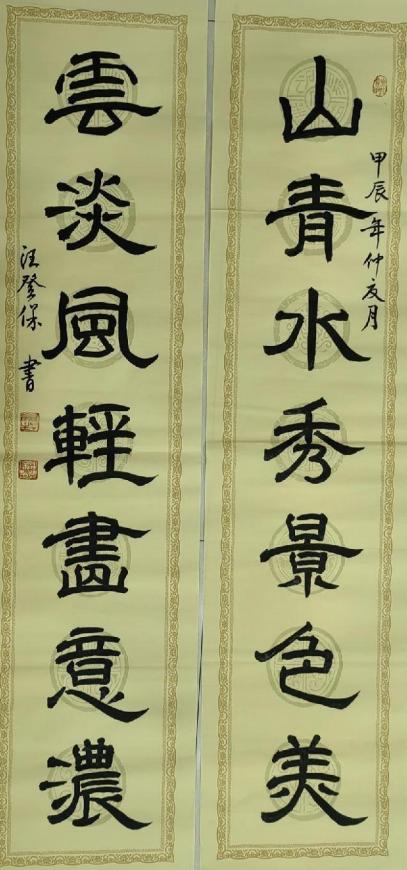 山青水秀景色美
甲辰年仲夏月
雲淡風輕畫意濃
汪登保書